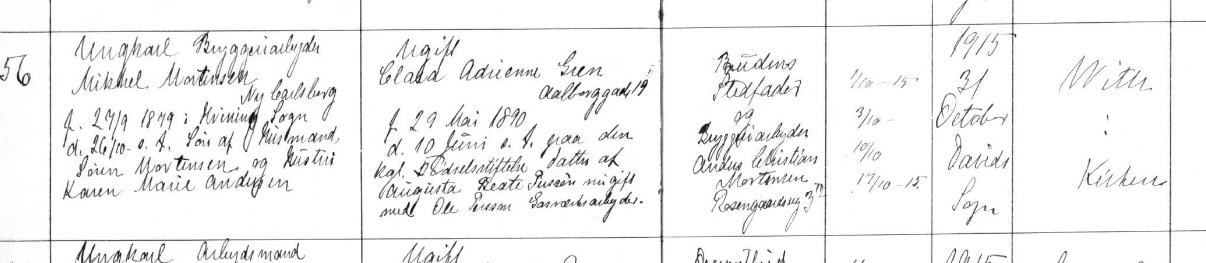 56
Ungkarl Bryggeriarbejder
Mikael Mortensen
Ny Carlsberg
f. 27/9 1879 i Sogn
d. 26/10 s. A. Søn af Husmand
Søren Mortensen og Hustru
Karen Marie Andersen
Ugift
Clara Adrienne Gren
Aalborggade 19
f. 29 Mai 1890
d. 10 Juni s. A. paa den
kgl. Fødselsstiftelse Datter af
Augusta Beate Persson nu gift
med Ole Persson Gasværksarbejder.
Brudens
Stedfader
og
Bryggeriarbejder
Anders Christian
Mortensen
Rosengaardsvej 3
1/10 - 15
3/10 -
10/10
17/10 - 15.
1915
31
October
Davids
Sogn
With
:
Kirken
Ungkarl Arbejdsmand
Ugift
1915